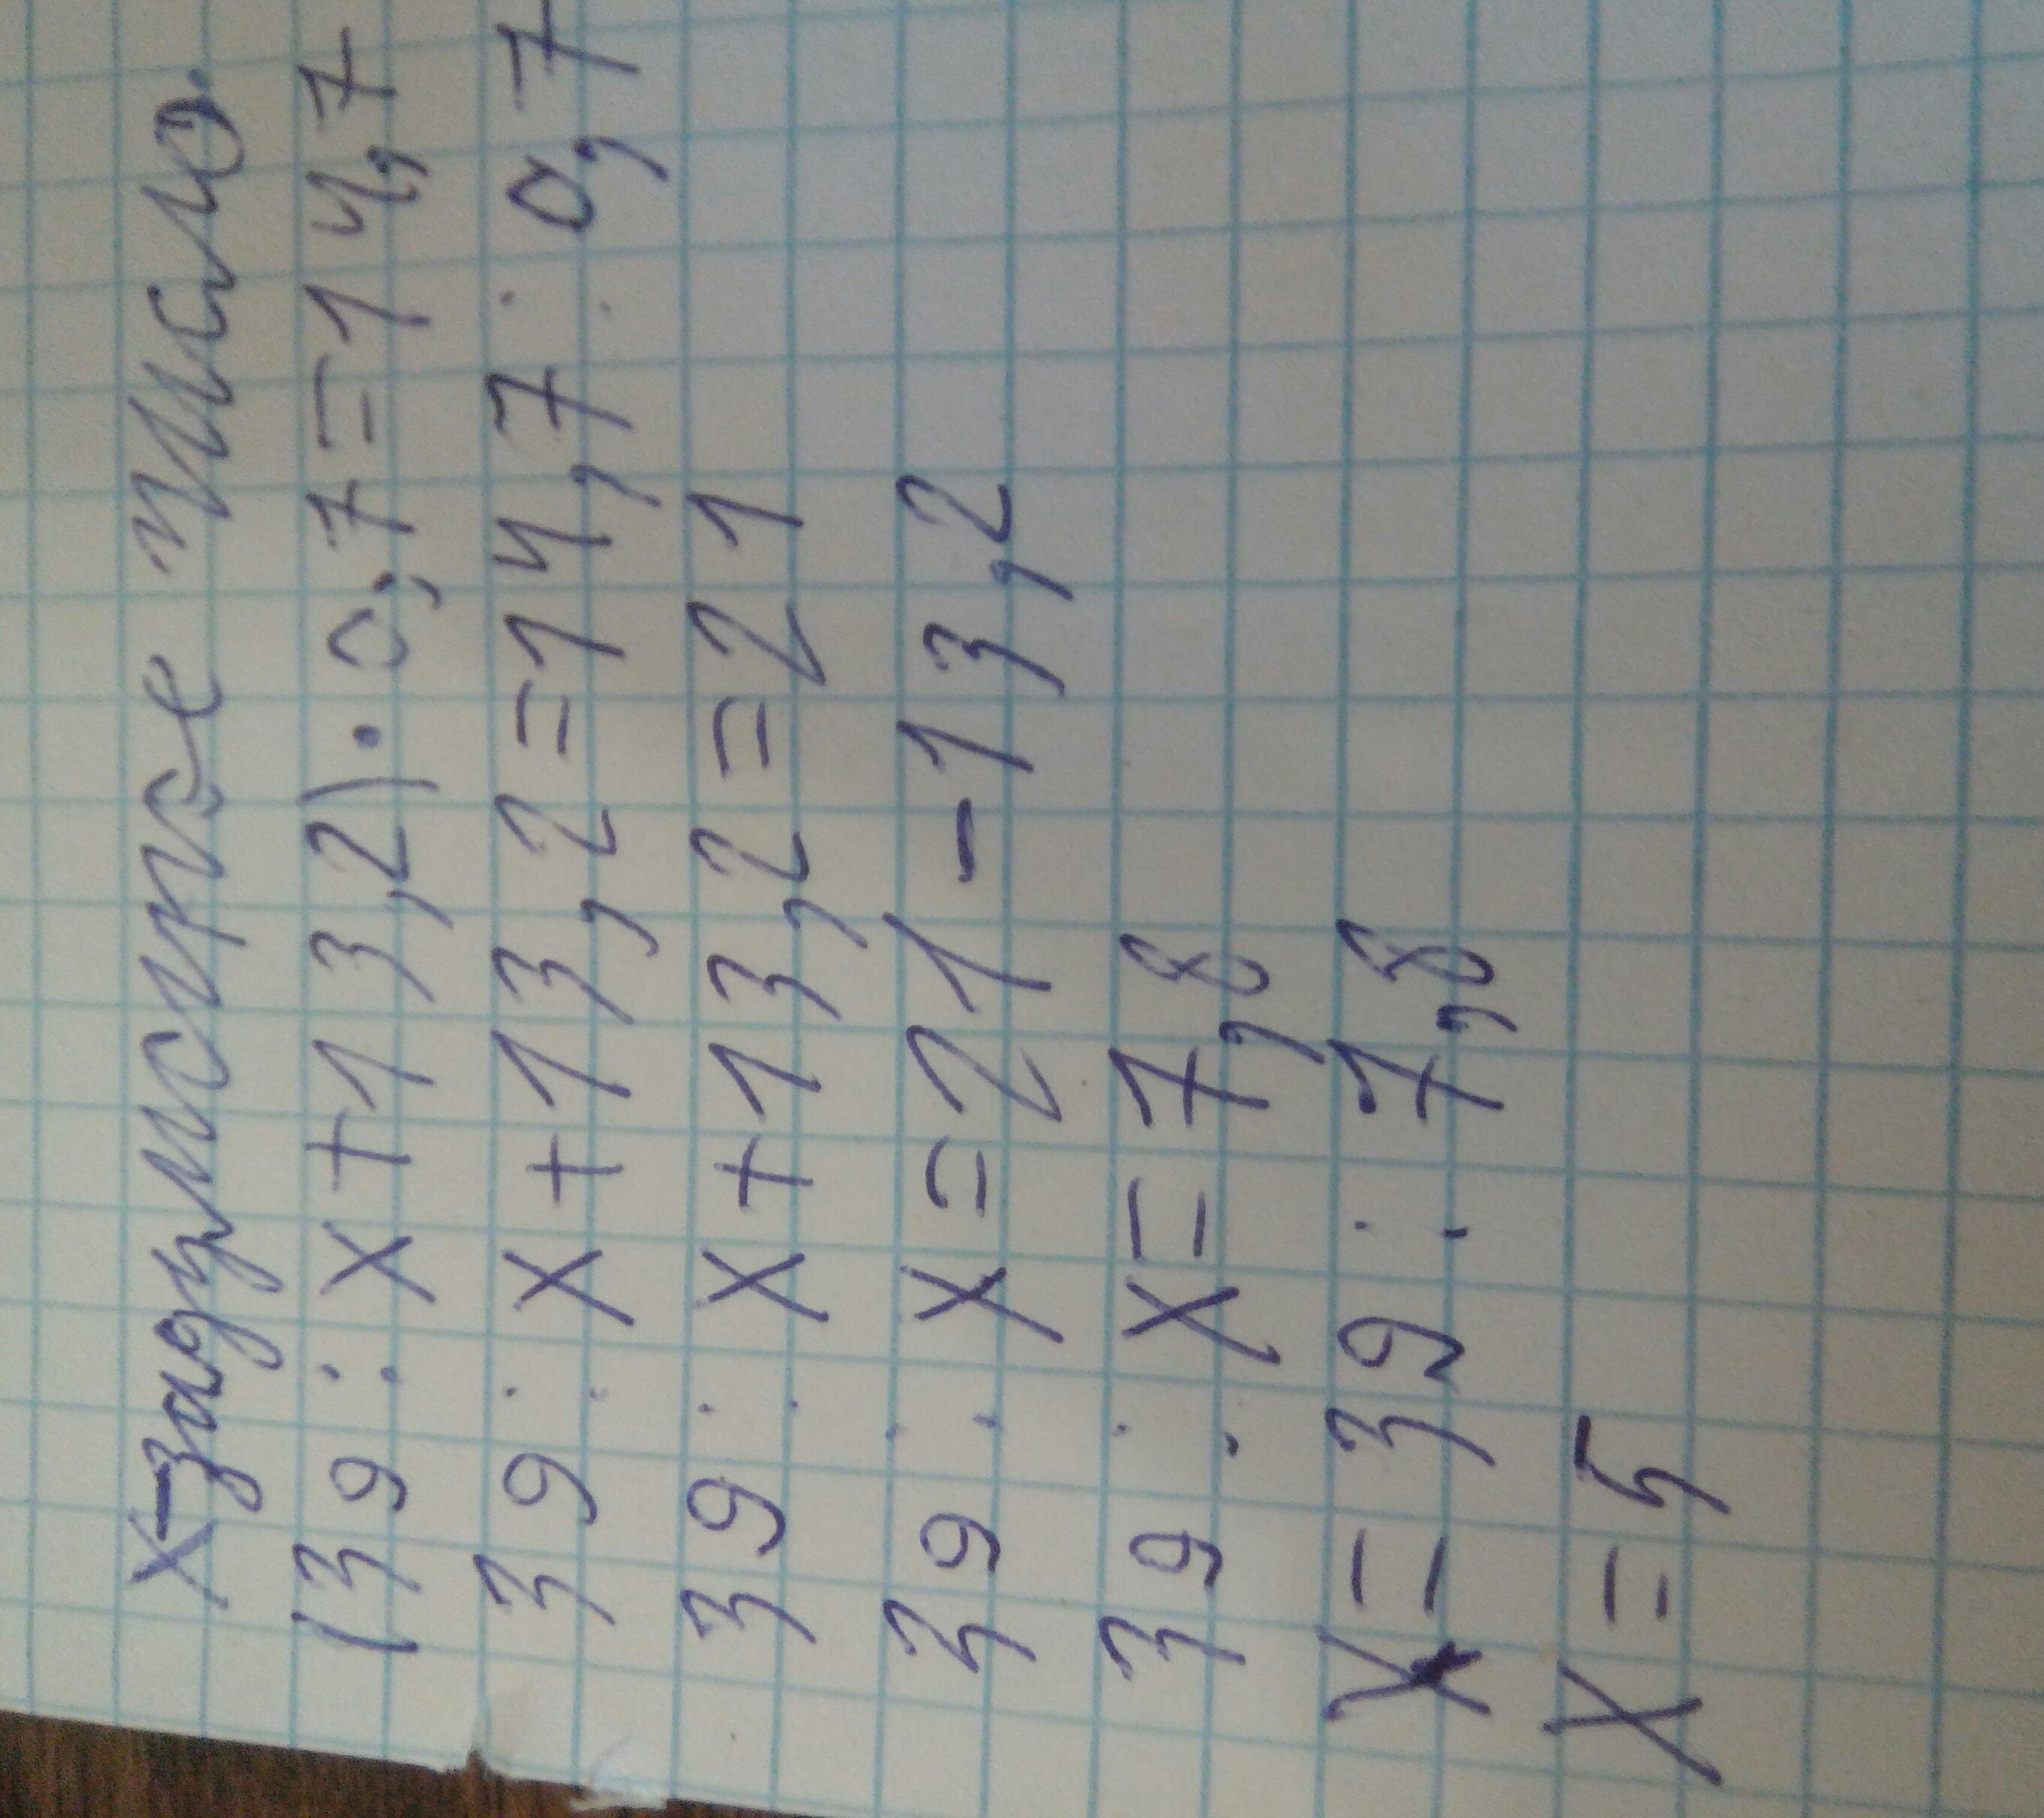 x-задуманное число.
(39:x+13,2)·0,7=14,7
39:x+13,2=14,7:0,7
39:x+13,2=21
39:x=21-13,2
39:x=7,8
x=39:7,8
x=5